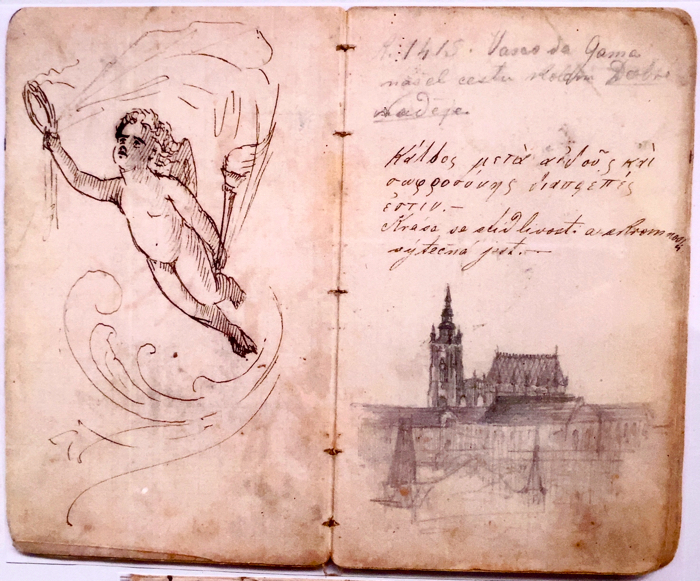 R. 1415. Vasco da Gama
našel cestu kolem Dobré
naděje.
Κάλλος μετὰ αἰδοῦς καὶ
σωφροσύνης διαπρεπές
ἐστιν.—
Krása se stydlivostí a skromností
výtečná jest.—